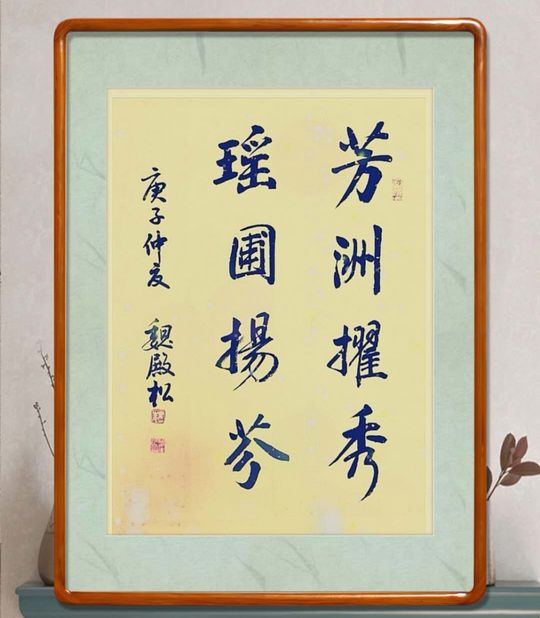 芳洲擢秀
瑶圃揚芬
庚子仲夏 魏殿松